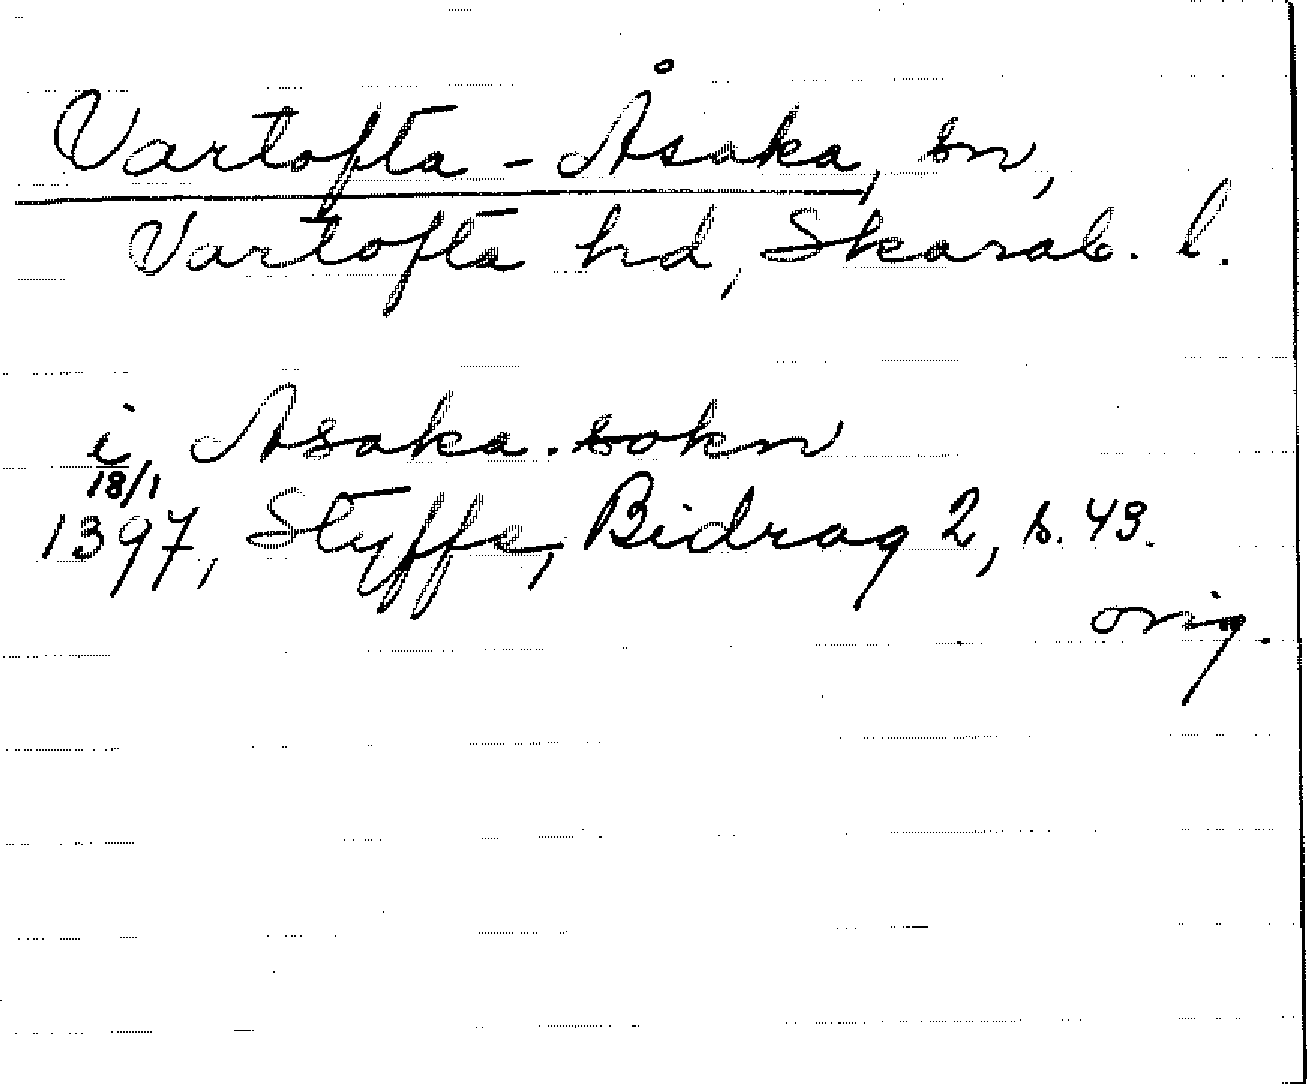 Vartofta - Åsaka, sn,
Vartofta hd, Skarab. l.
i Asaka. sokn
18/1
1397, Styffe, Bidrag 2, s. 43.
orig.